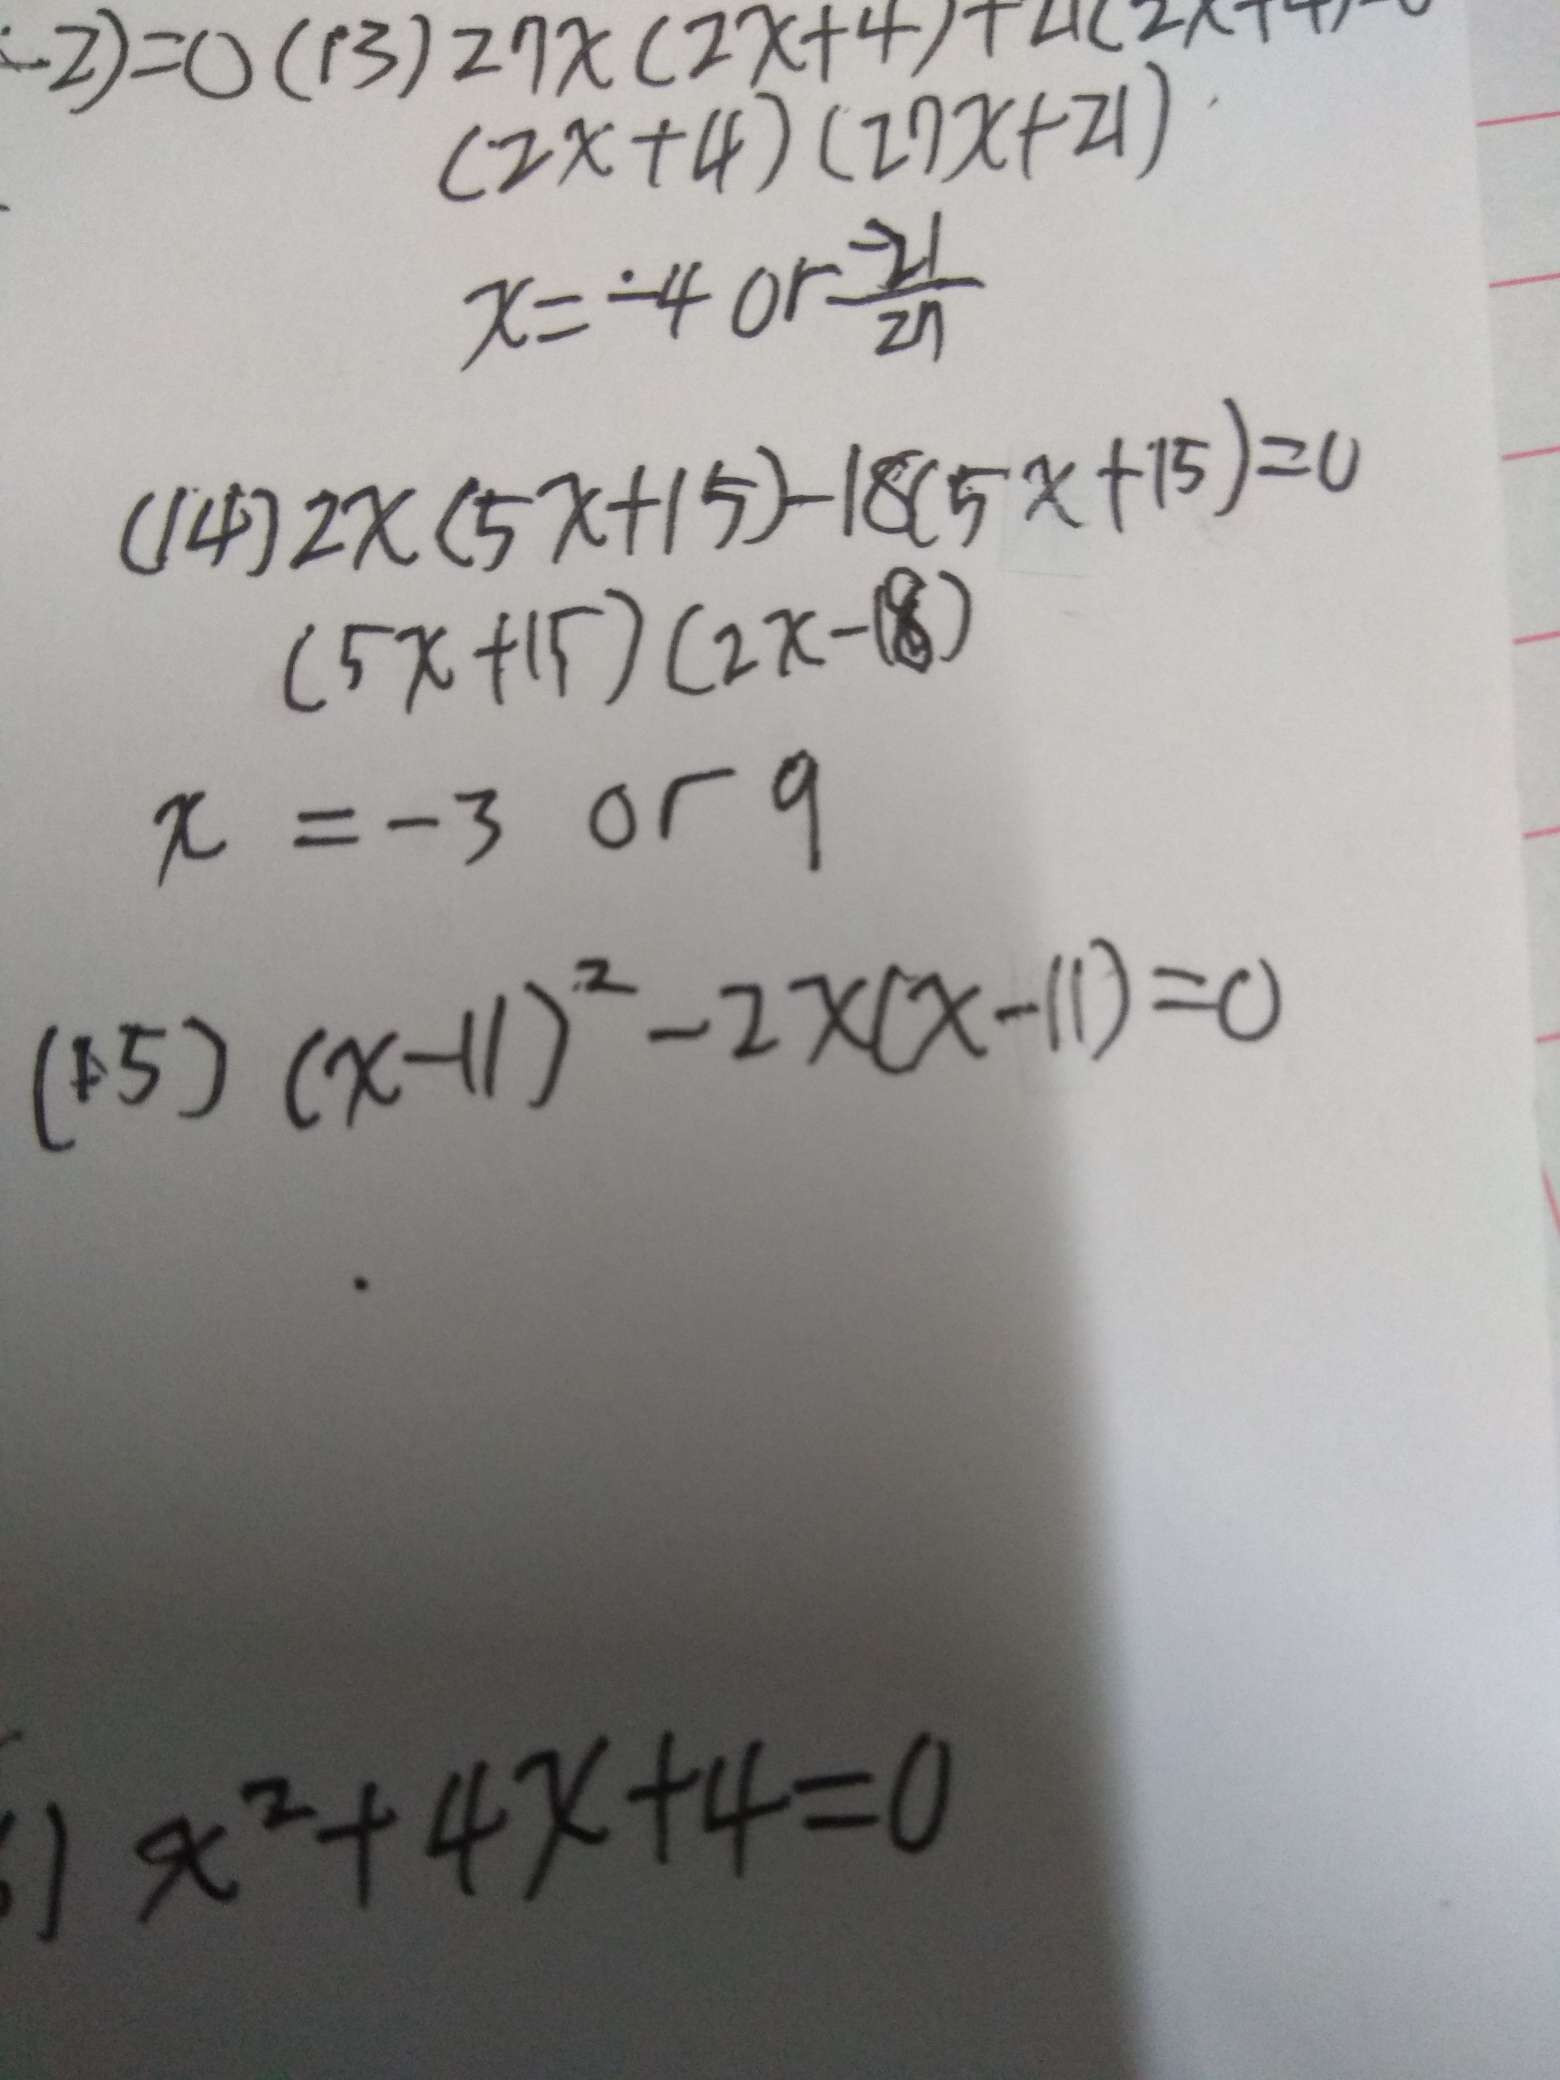 -2)=0 (13) 27x(2x+4)+21(2x+4)=0
(2x+4)(27x+21)
x=-4 or -21/27
(14) 2x(5x+15)-18(5x+15)=0
(5x+15)(2x-18)
x = -3 or 9
(15) (x-11)²-2x(x-11)=0
) x²+4x+4=0